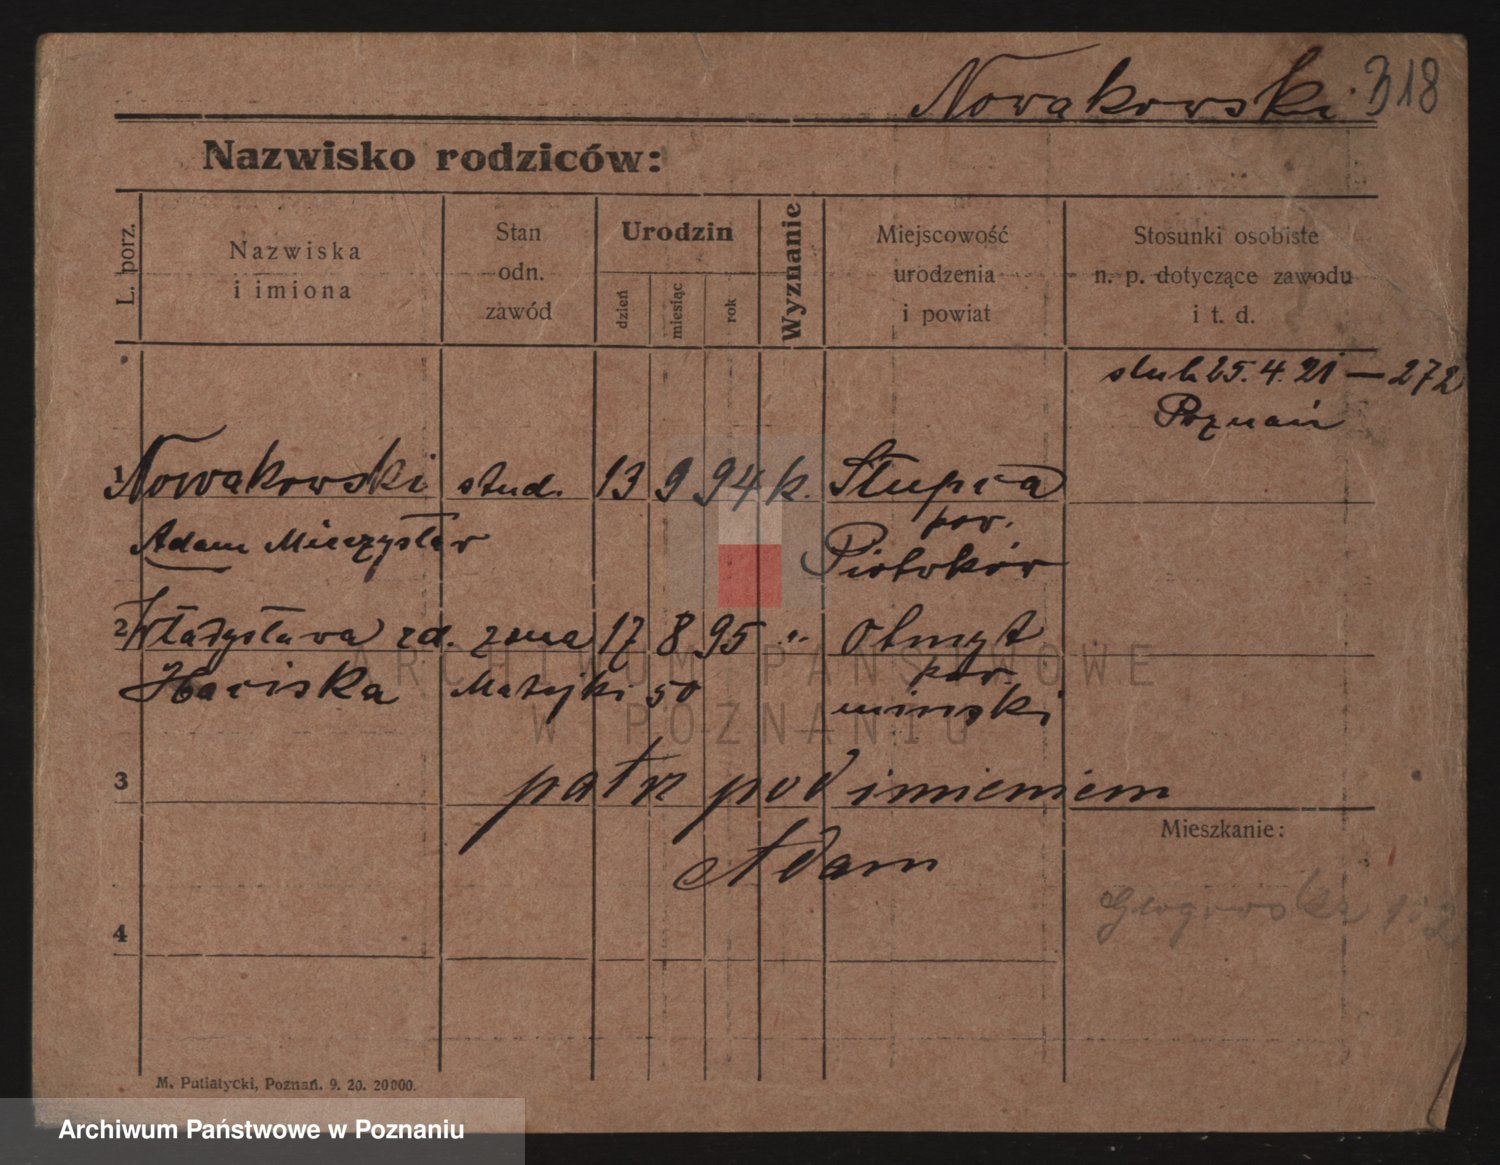 Nowakowski 318
Nazwisko rodziców:
L. porz.
Nazwiska
i imiona
Stan
odn.
zawód
Urodzin
dzień
miesiąc
rok
Wyznanie
Miejscowość
urodzenia
i powiat
Stosunki osobiste
n. p. dotyczące zawodu
i t. d.
ślub 25. 4. 21 — 272
Poznań
1 Nowakowski stud. 13 9 94 k. Słupca
pow.
Adam Mieczysław Piotrków
2 Władysława zd. żona 17 8 95 "
pow.
Matejki 50 miński
3 patrz pod imieniem
Adam
Mieszkanie:
Głogowska
4
M. Putiatycki, Poznań. 9. 20. 20000.
ARCHIWUM PAŃSTWOWE
W POZNANIU
Archiwum Państwowe w Poznaniu